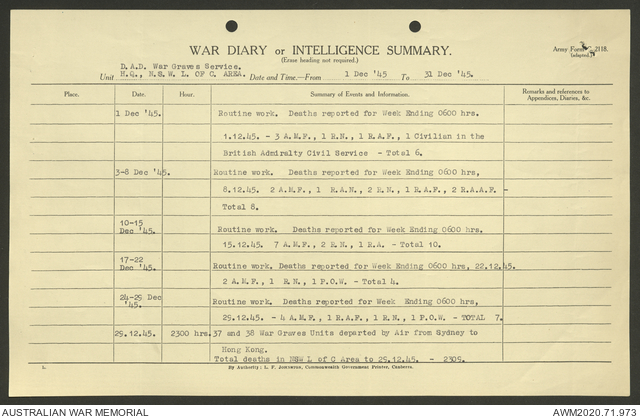 WAR DIARY or INTELLIGENCE SUMMARY.
(Erase heading not required.)
Army Form C. 2118.
(adapted.)
D.A.D. War Graves Service.
Unit H.Q., N.S.W. L. OF C. AREA. Date and Time.—From 1 Dec '45 To 31 Dec '45.
Place. Date. Hour. Summary of Events and Information. Remarks and references to Appendices, Diaries, &c.
1 Dec '45. Routine work. Deaths reported for Week Ending 0600 hrs.
1.12.45. - 3 A.M.F., 1 R.N., 1 R.A.F., 1 Civilian in the
British Admiralty Civil Service - Total 6.
3-8 Dec '45. Routine work. Deaths reported for Week Ending 0600 hrs,
8.12.45. 2 A.M.F., 1 R.A.N., 2 R.N., 1 R.A.F., 2 R.A.A.F. -
Total 8.
10-15
Dec '45. Routine work. Deaths reported for Week Ending 0600 hrs.
15.12.45. 7 A.M.F., 2 R.N., 1 R.A. - Total 10.
17-22
Dec '45. Routine work. Deaths reported for Week Ending 0600 hrs, 22.12.45.
2 A.M.F., 1 R.N., 1 P.O.W. - Total 4.
24-29 Dec
'45. Routine work. Deaths reported for Week Ending 0600 hrs,
29.12.45. - 4 A.M.F., 1 R.A.F., 1 R.N., 1 P.O.W. - TOTAL 7.
29.12.45. 2300 hrs. 37 and 38 War Graves Units departed by Air from Sydney to
Hong Kong.
Total deaths in NSW L of C Area to 29.12.45. - 2309.
L. By Authority: L. F. Johnston, Commonwealth Government Printer, Canberra.
AUSTRALIAN WAR MEMORIAL
AWM2020.71.973